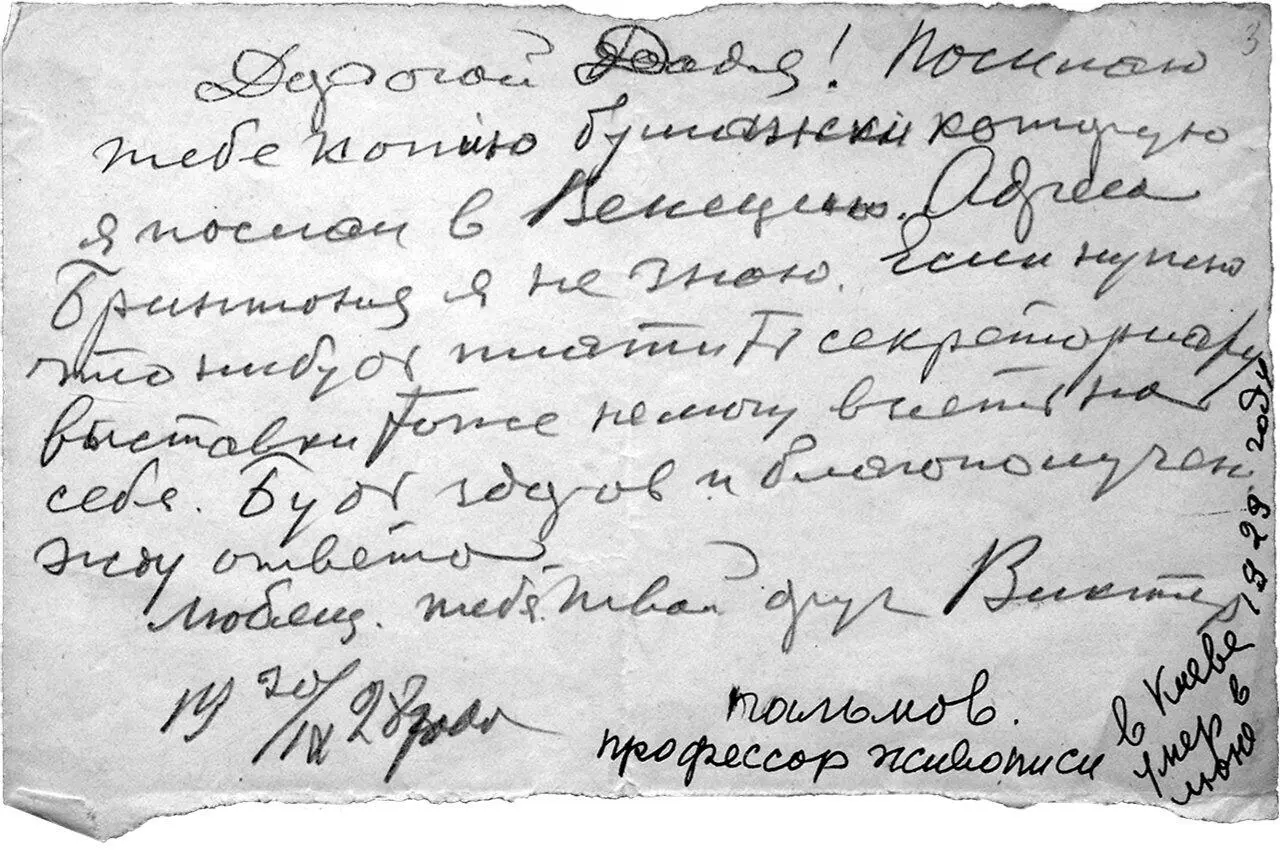 3
Дорогой Додя! Посылаю
тебе копию бумажки которую
я послал в Венецию. Адреса
Бринтона я не знаю. Если нужно
что нибудь платить секретариату
выставки тоже немогу взять на
себя. Будь здоров и благополучен
жду ответа.
Любящ. тебя твой друг Виктор
19 30/IX 28 года
пальмов.
профессор живописи
умер в
июне
в Киеве 1929 году